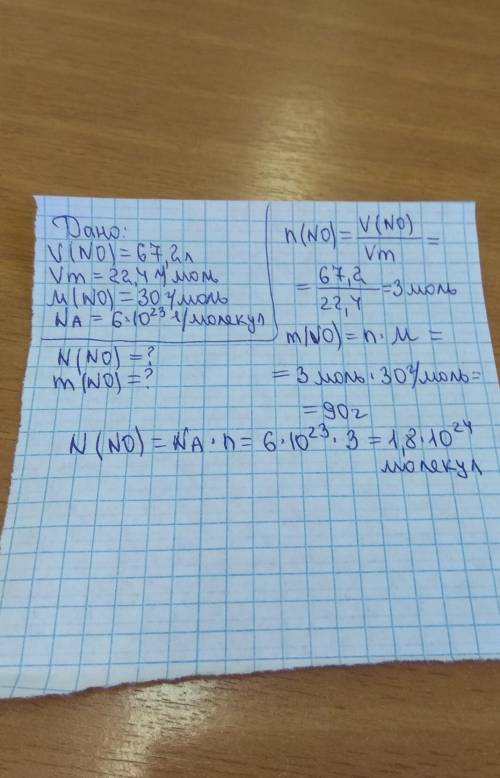 Дано:
V(NO) = 67,2л
Vm = 22,4 л/моль
M(NO) = 30 г/моль
NA = 6·10²³ 1/молекул
N(NO) = ?
m(NO) = ?
n(NO) = V(NO)/Vm =
= 67,2/22,4 = 3 моль
m(NO) = n·M =
= 3 моль·30 г/моль =
= 90г
N(NO) = NA·n = 6·10²³·3 = 1,8·10²⁴
молекул